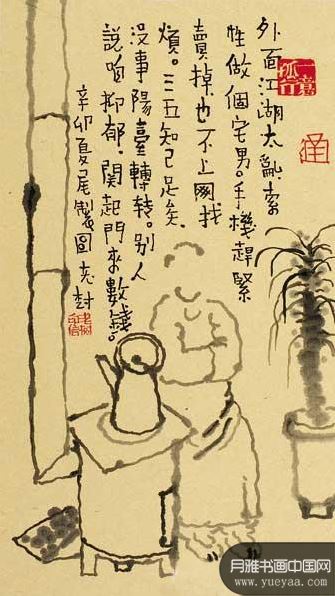 外面江湖太亂索
性做個宅男。手機趕緊
賣掉也不上网找
煩。三五知己足矣
沒事陽臺轉转。别人
說咱抑郁。関起門來數錢。
辛卯夏尾製圖
一意孤行
月雅书画中国网
www.yueyaa.com